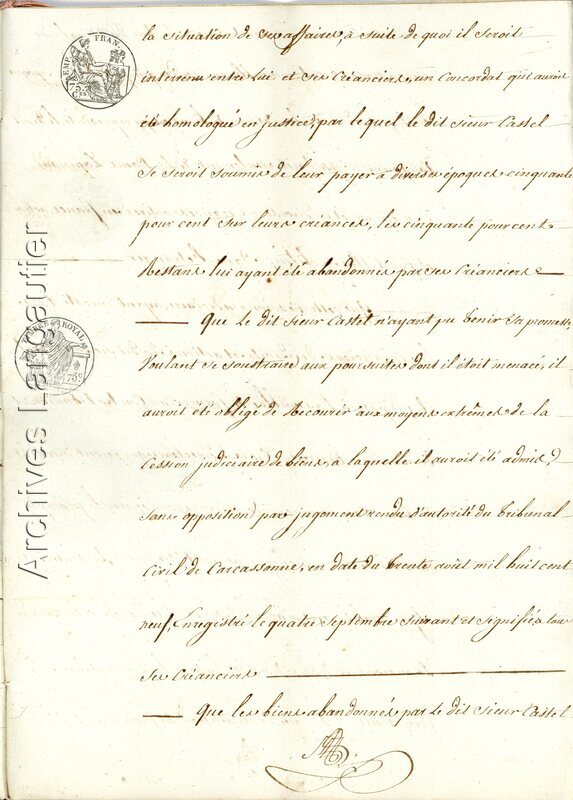 EMP. FRAN.
75c
TIMBRE ROYAL
Archives Langautier
la situation de ses affaires, à suite de quoi il seroit
intervenu entre lui et ses créanciers, un concordat qui auroit
été homologué en justice, par lequel le dit sieur Castel
se seroit soumis de leur payer à diverses époques cinquante
pour cent sur leurs créances, les cinquante pour cent
restans lui ayant été abandonnés par ses créanciers
que le dit sieur Castel n'ayant pu tenir sa promesse,
voulant se soustraire aux poursuites dont il étoit menacé, il
auroit été obligé de recourir aux moyens extrêmes de la
cession judiciaire de biens, à laquelle il auroit été admis,
sans opposition, par jugement rendu d'autorité du tribunal
civil de Carcassonne, en date du trente août mil huit cent
neuf, enregistré le quatre septembre suivant et signifié à tous
ses créanciers
que les biens abandonnés par le dit sieur Castel